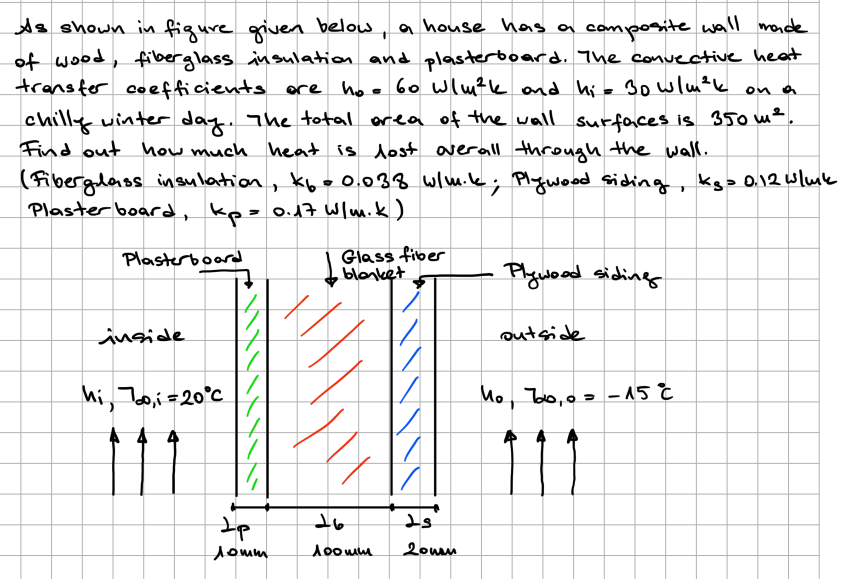 As shown in figure given below, a house has a composite wall made
of wood, fiberglass insulation and plasterboard. The convective heat
transfer coefficients are ho = 60 W/m²k and hi = 30 W/m²k on a
chilly winter day. The total area of the wall surfaces is 350 m².
Find out how much heat is lost overall through the wall.
(Fiberglass insulation, kb = 0.038 W/m.k; Plywood siding, ks = 0.12 W/mk
Plasterboard, kp = 0.17 W/m.k)
Plasterboard
Glass fiber
blanket
Plywood siding
inside
outside
hi, T∞,i = 20°C
ho, T∞,o = -15°C
Lp
Lb
Ls
10mm
100mm
20mm